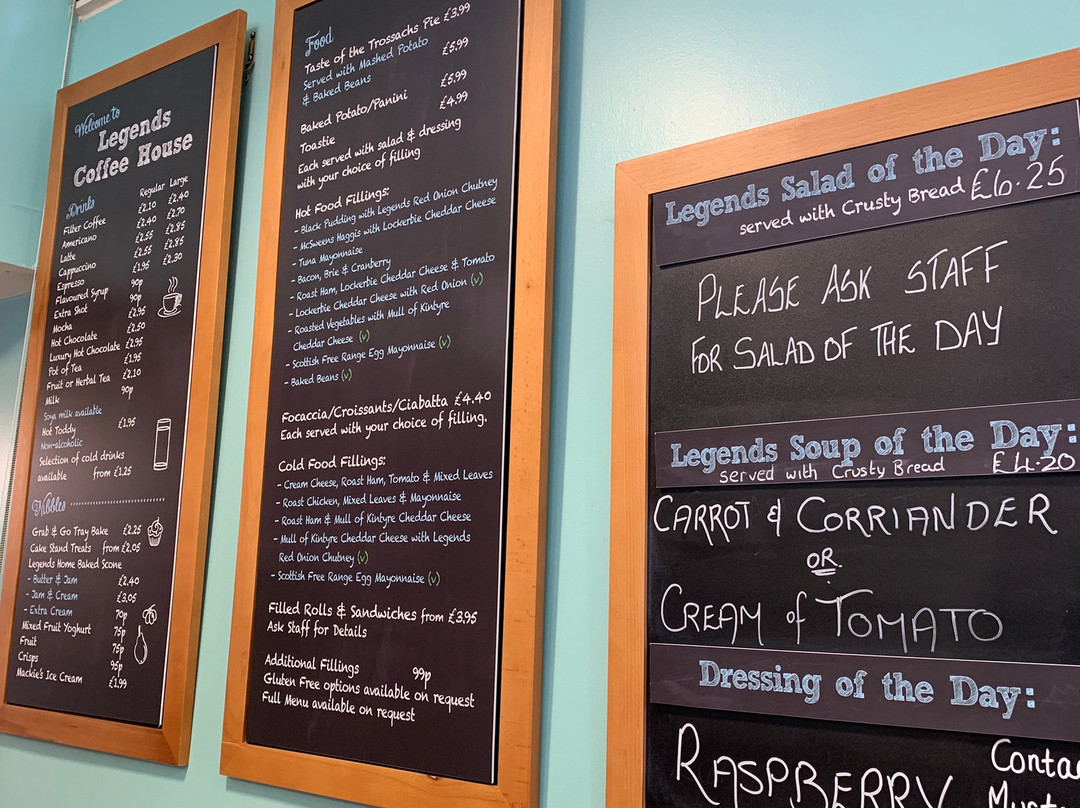 Welcome to
Legends
Coffee House
Drinks
Regular Large
Filter Coffee £2.10 £2.40
Americano £2.40 £2.70
Latte £2.55 £2.85
Cappuccino £2.55 £2.85
Espresso £1.95 £2.30
Flavoured Syrup 90p
Extra Shot 90p
Mocha £2.95
Hot Chocolate £2.50
Luxury Hot Chocolate £2.95
Pot of Tea £1.95
Fruit or Herbal Tea £2.10
Milk 90p
Soya milk available
Hot Toddy £1.95
Non-alcoholic
Selection of cold drinks
available from £1.25
Nibbles
Grab & Go Tray Bake £2.25
Cake Stand Treats from £2.05
Legends Home Baked Scone
- Butter & Jam £2.40
- Jam & Cream £3.05
- Extra Cream 70p
Mixed Fruit Yoghurt 75p
Fruit 75p
Crisps 95p
Mackie's Ice Cream £1.99
Food
Taste of the Trossachs Pie £3.99
Served with Mashed Potato £5.99
& Baked Beans
£5.99
Baked Potato/Panini £4.99
Toastie
Each served with salad & dressing
with your choice of filling
Hot Food Fillings:
- Black Pudding with Legends Red Onion Chutney
- McSweens Haggis with Lockerbie Cheddar Cheese
- Tuna Mayonnaise
- Bacon, Brie & Cranberry
- Roast Ham, Lockerbie Cheddar Cheese & Tomato
- Lockerbie Cheddar Cheese with Red Onion (v)
- Roasted Vegetables with Mull of Kintyre
Cheddar Cheese (v)
- Scottish Free Range Egg Mayonnaise (v)
- Baked Beans (v)
Focaccia/Croissants/Ciabatta £4.40
Each served with your choice of filling.
Cold Food Fillings:
- Cream Cheese, Roast Ham, Tomato & Mixed Leaves
- Roast Chicken, Mixed Leaves & Mayonnaise
- Roast Ham & Mull of Kintyre Cheddar Cheese
- Mull of Kintyre Cheddar Cheese with Legends
Red Onion Chutney (v)
- Scottish Free Range Egg Mayonnaise (v)
Filled Rolls & Sandwiches from £3.95
Ask Staff for Details
Additional Fillings 99p
Gluten Free options available on request
Full Menu available on request
Legends Salad of the Day:
served with Crusty Bread £6.25
PLEASE ASK STAFF
FOR SALAD OF THE DAY
Legends Soup of the Day:
served with Crusty Bread £4.20
CARROT & CORRIANDER
OR
CREAM of TOMATO
Dressing of the Day:
RASPBERRY